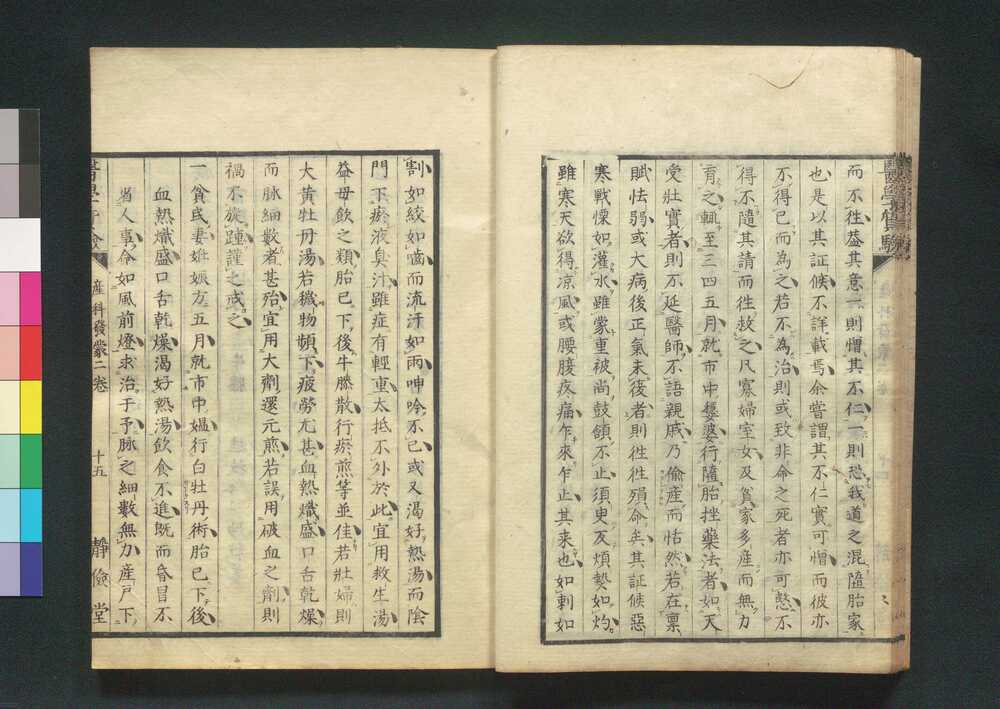 而不往蓋其意一則憎其不仁一則恐我道之混隨胎家
也是以其証候不詳載焉余嘗謂其不仁實可憎而彼亦
不得已而為之若不為治則或致非命之死者亦可愍不
得不隨其請而往救之凡寡婦室女及貧家多產而無力
育之輒至三四五月就市中穩婆行隨胎挫藥法者如天
愛壯實者則不延醫師不語親戚乃偷產而怙然若在稟
賦怯弱或大病後正氣未後者則徃徃殞命矣其証候惡
寒戰慄如灌水雖蒙重被尚鼓頷不止須臾反煩𤍠如灼
雖寒天欲得凉風或腰腹疼痛乍來乍止其來也如刺如
割如絞如嚙而流汗如雨呻吟不已或又渴好熱湯而陰
門下瘀液臭汁雖症有輕重太抵不外於此宜用救生湯
益母飲之類胎已下後牛膝散行瘀煎等並佳若壯婦則
大黃牡丹湯若穢物頻下疲勞尤甚血熱熾盛口舌乾燥
而脉細數者甚殆宜用大劑還元煎若誤用破血之劑則
禍不旋踵謹之戒之
一貧或妻姙娠方五月就市中媼行白牡丹術胎已下後
血熱熾盛口舌乾燥渴好熱湯飲食不進既而昏冒不
省人事命如風前燈求治于予脉之細數無力產戶下
產科發蒙二卷
十五
靜儉堂